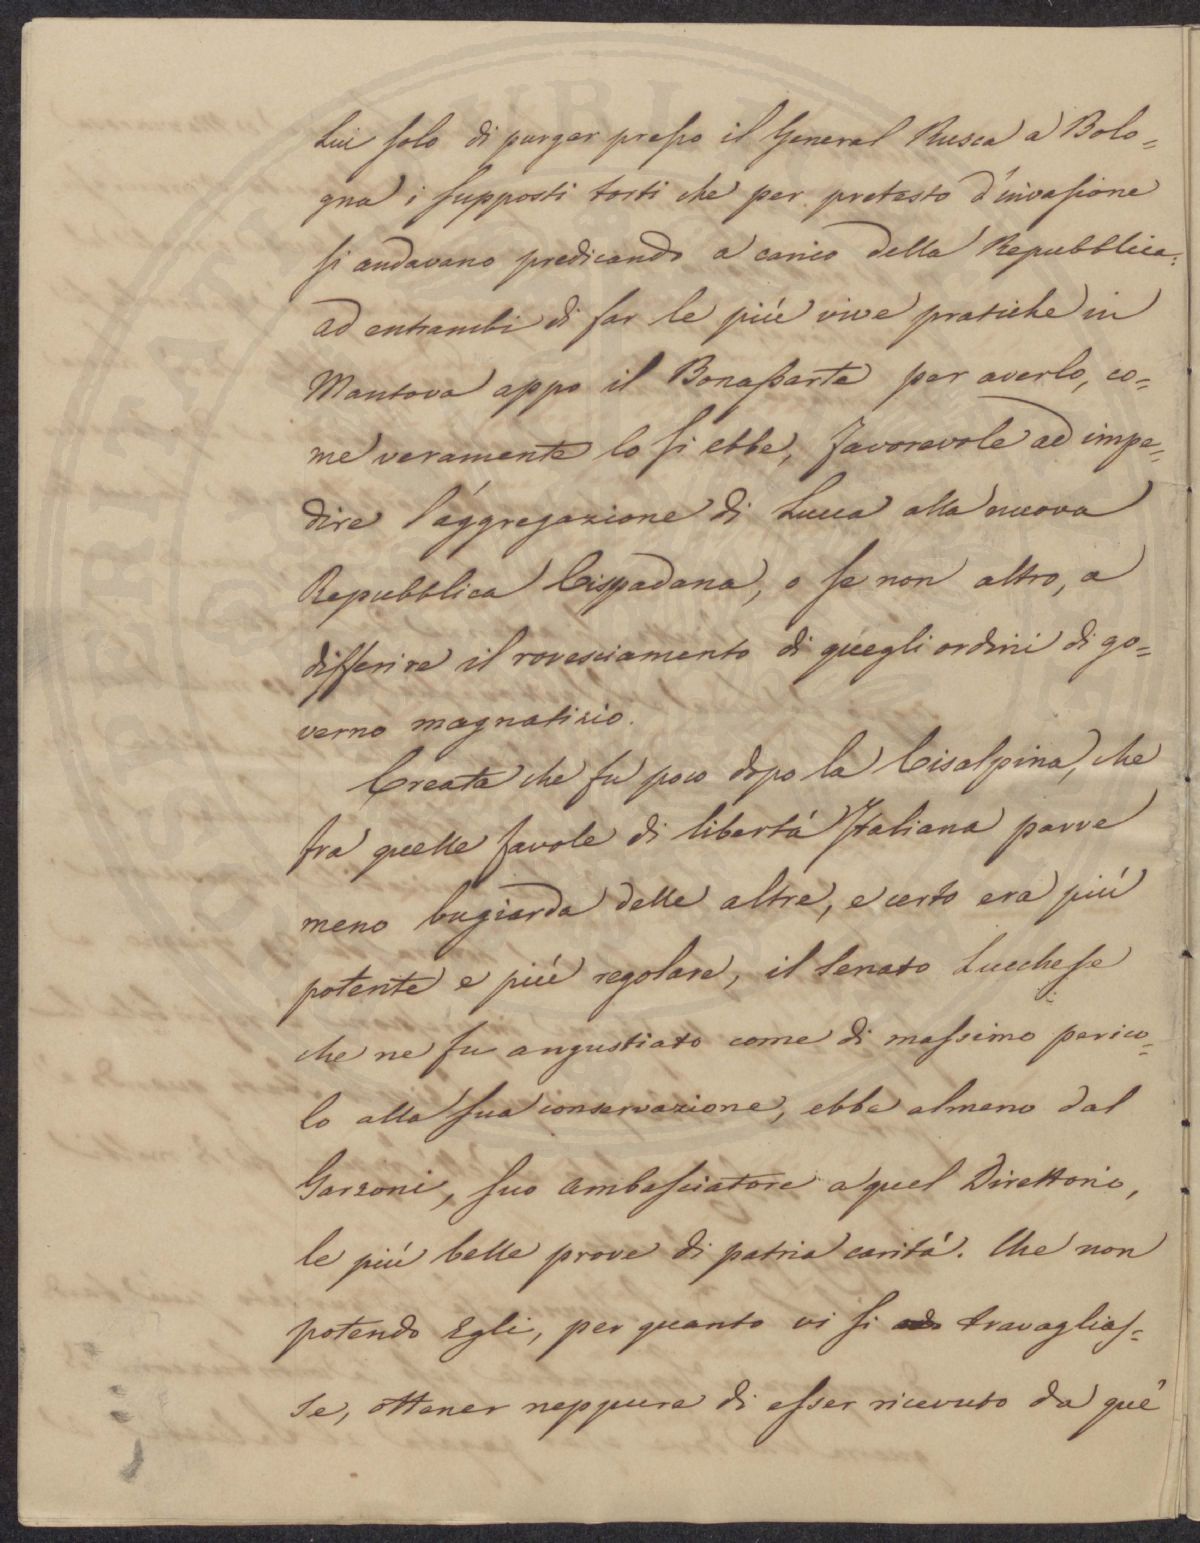 Lui solo di purgar presso il General Rusca a Bolo=
gna i supposti torti che per pretesto d'invasione
si andavano predicando a carico della Repubblica:
ad entrambi di far le più vive pratiche in
Mantova appo il Bonaparte per averlo, co=
me veramente lo si ebbe, favorevole ad impe=
dire l'aggregazione di Lucca alla nuova
Repubblica Cispadana, o se non altro, a
differire il rovesciamento di quegli ordini di go=
verno magnatizio.
Creata che fu poco dopo la Cisalpina, che
fra quelle favole di libertà Italiana parve
meno bugiarda delle altre, e certo era più
potente e più regolare, il Senato Lucchese
che ne fu angustiato come di massimo perico=
lo alla sua conservazione, ebbe almeno dal
Garzoni, suo ambasciatore a quel Direttorio,
le più belle prove di patria carità. Che non
potendo Egli, per quanto vi si travaglias=
se, ottener neppure di esser ricevuto da que'